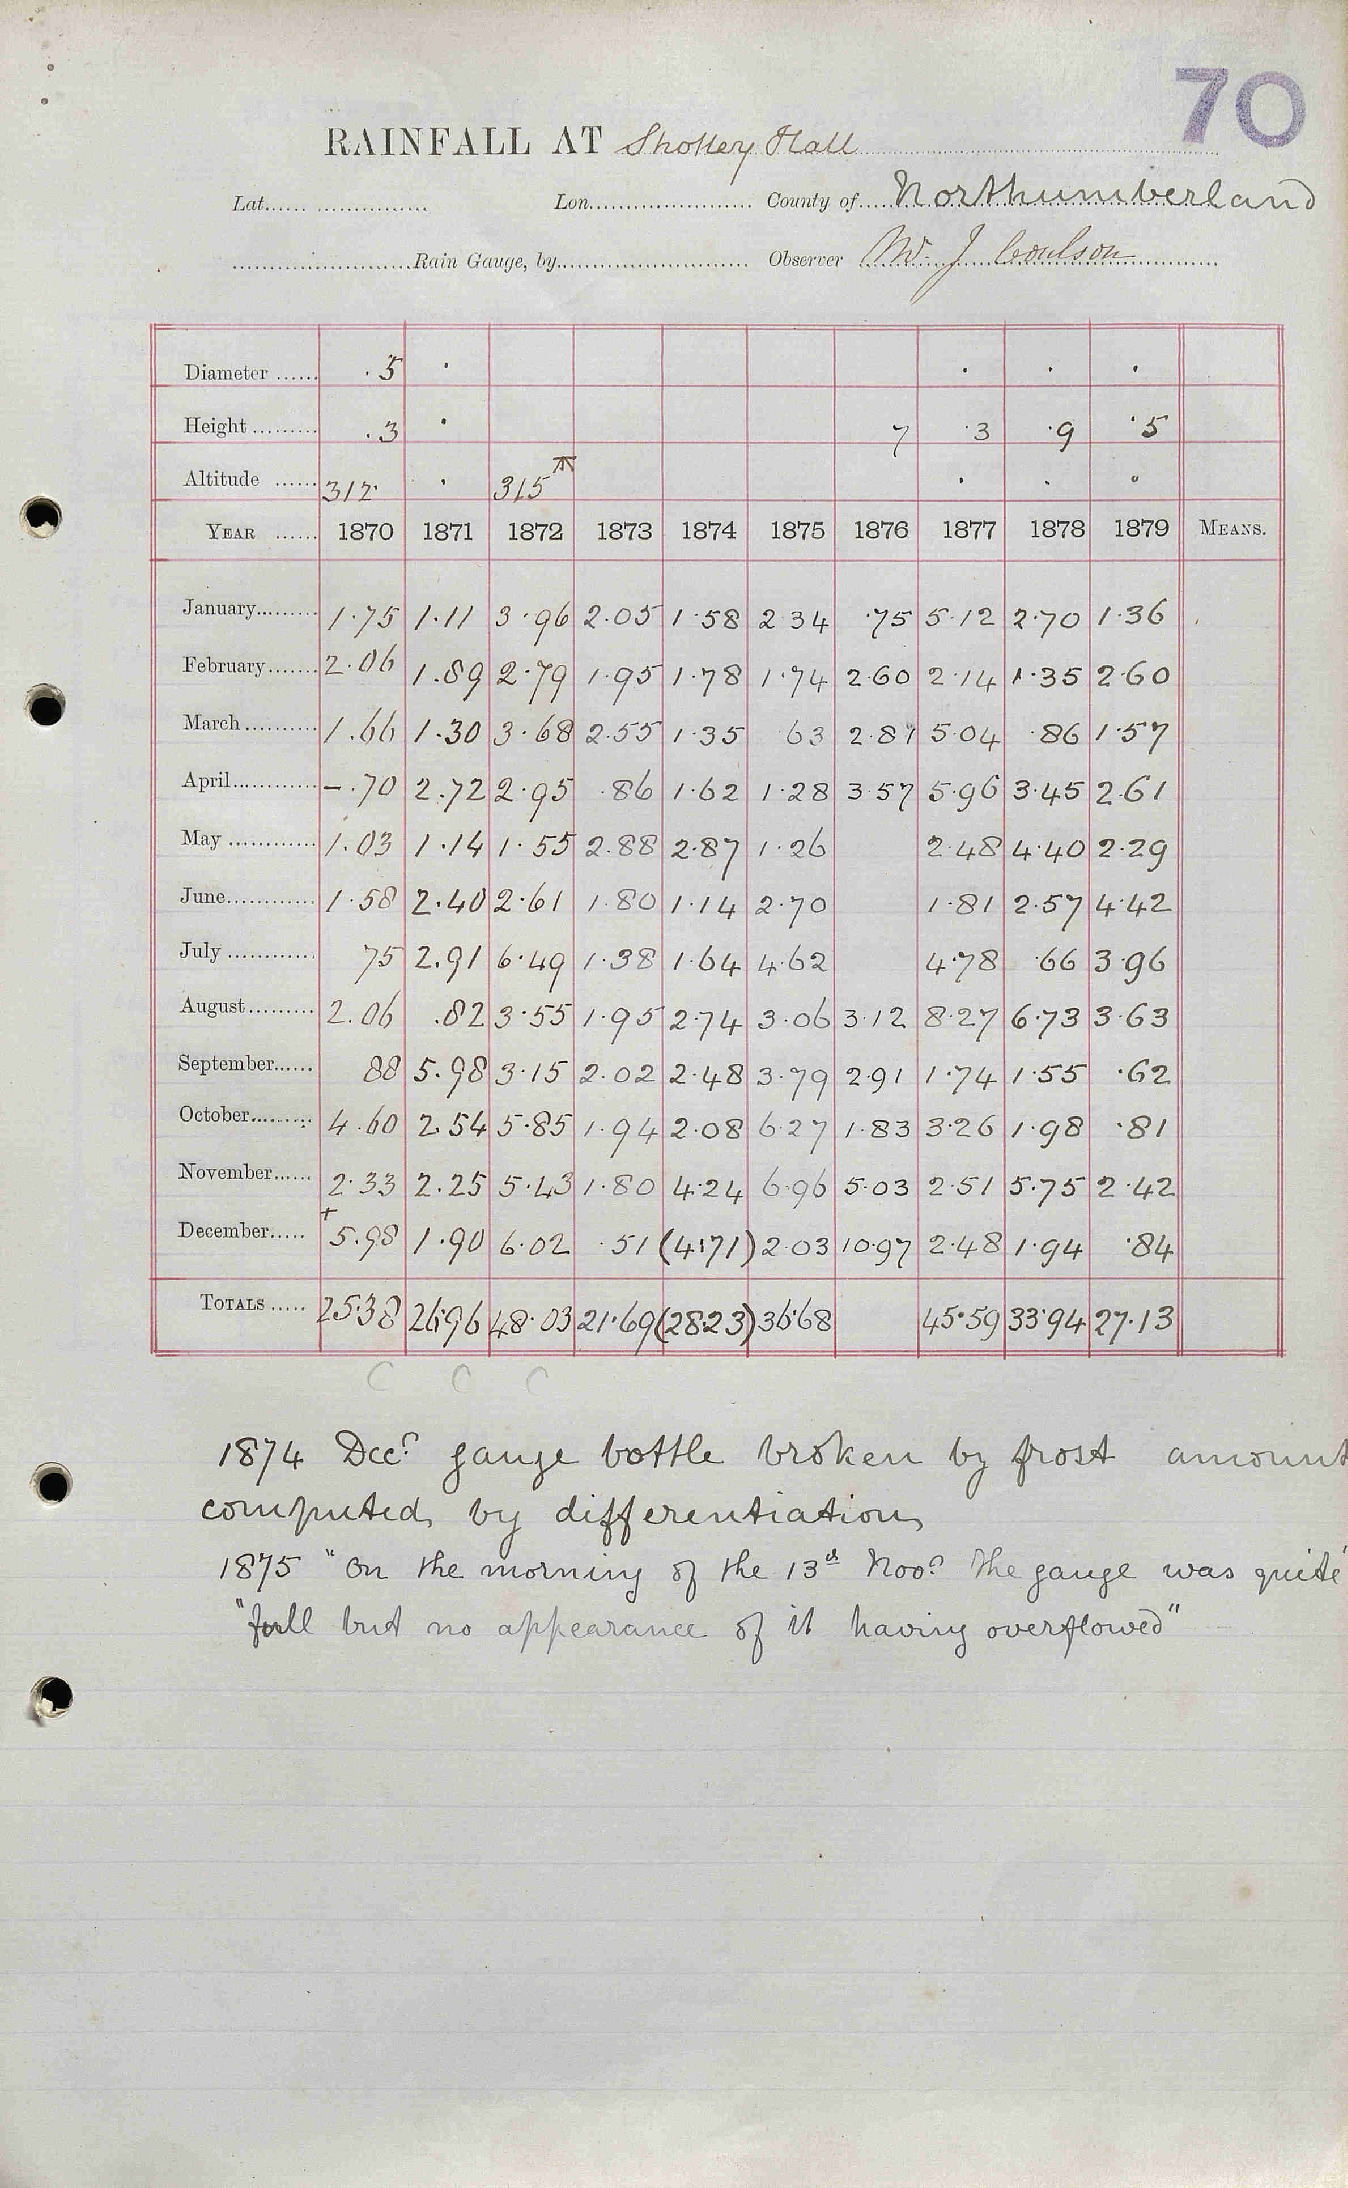 70
RAINFALL AT Shotley Hall
Lat. Lon. County of Northumberland
Rain Gauge, by Observer Mr. J Coulson
Diameter 5 · · · ·
Height .3 · 7 ·3 ·9 ·5
Altitude 312 · 315 · · ·
YEAR 1870 1871 1872 1873 1874 1875 1876 1877 1878 1879 MEANS.
January 1.75 1.11 3.96 2.05 1.58 2.34 .75 5.12 2.70 1.36
February 2.06 1.89 2.79 1.95 1.78 1.74 2.60 2.14 1.35 2.60
March 1.66 1.30 3.68 2.55 1.35 63 2.87 5.04 .86 1.57
April -.70 2.72 2.95 .86 1.62 1.28 3.57 5.96 3.45 2.61
May 1.03 1.14 1.55 2.88 2.87 1.26 2.48 4.40 2.29
June 1.58 2.40 2.61 1.80 1.14 2.70 1.81 2.57 4.42
July 75 2.91 6.49 1.38 1.64 4.62 4.78 .66 3.96
August 2.06 .82 3.55 1.95 2.74 3.06 3.12 8.27 6.73 3.63
September 88 5.98 3.15 2.02 2.48 3.79 2.91 1.74 1.55 .62
October 4.60 2.54 5.85 1.94 2.08 6.27 1.83 3.26 1.98 .81
November 2.33 2.25 5.43 1.80 4.24 6.96 5.03 2.51 5.75 2.42
December + 5.98 1.90 6.02 .51 (4.71) 2.03 10.97 2.48 1.94 .84
TOTALS 25.38 26.96 48.03 21.69 (28.23) 36.68 45.59 33.94 27.13
C C C
1874 Decr gauge bottle broken by frost amount
computed by differentiation
1875 "On the morning of the 13th Novr the gauge was quite
"full but no appearance of it having overflowed"